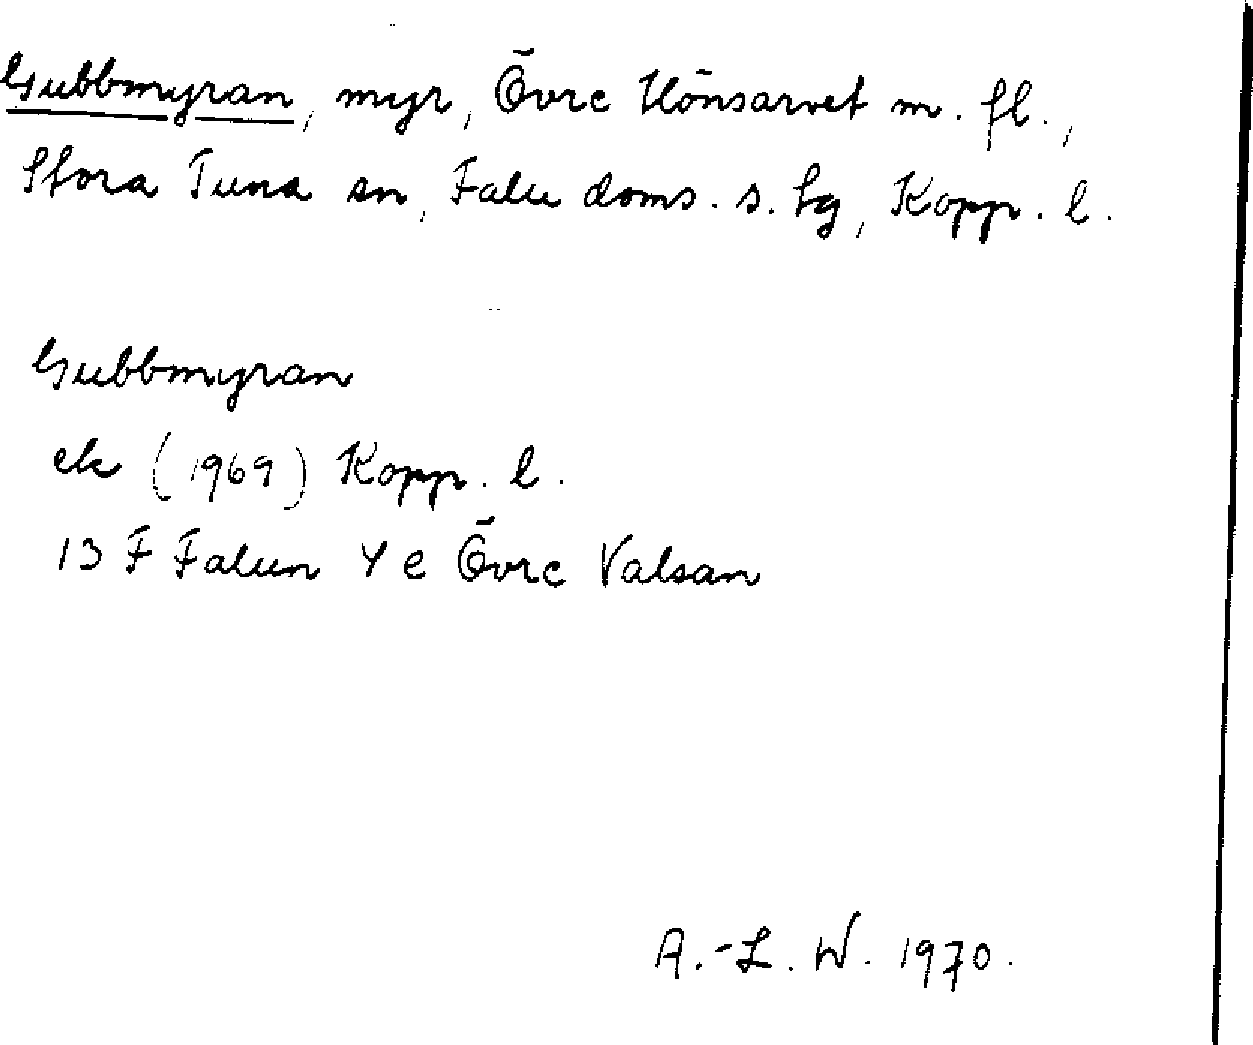 Gubbmyran, myr, Övre Hönsarvet m. fl.,
Stora Tuna sn, Falu doms. s. tg, Kopp. l.
Gubbmyran
ek (1969) Kopp. l.
13 F Falun 4 e Övre Valsan
A.-L. W. 1970.